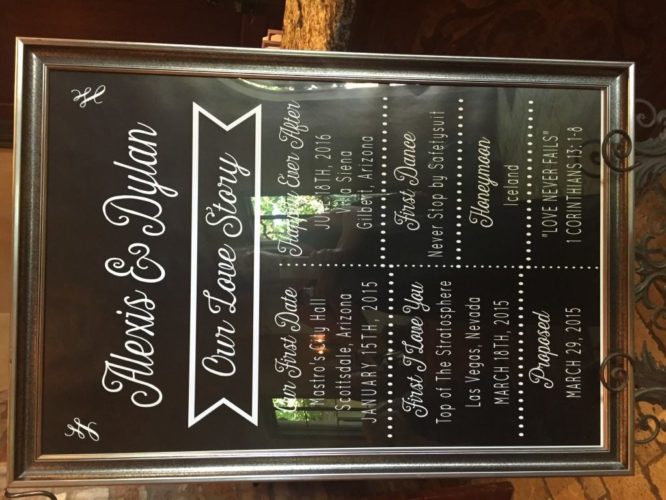 Alexis & Dylan
Our Love Story
Our First Date
Mastro's City Hall
Scottsdale, Arizona
JANUARY 15TH, 2015
First I Love You
Top of The Stratosphere
Las Vegas, Nevada
MARCH 18TH, 2015
Proposed
MARCH 29, 2015
Happily Ever After
JUNE 18TH, 2016
Villa Siena
Gilbert, Arizona
First Dance
Never Stop by Safetysuit
Honeymoon
Iceland
"LOVE NEVER FAILS"
1 CORINTHIANS 13:1-8